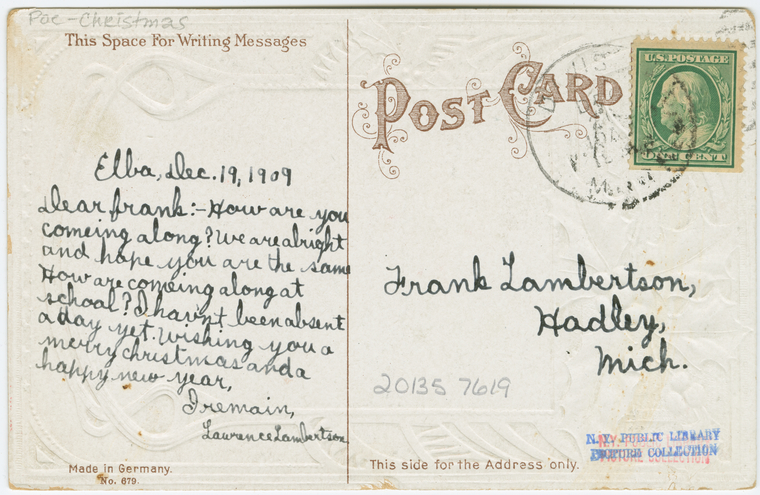 Poc-Christmas
This Space For Writing Messages
POST CARD
U.S. POSTAGE
ONE CENT
Elba, Dec. 19, 1909
Dear frank:- How are you
comeing along? We are alright
and hope you are the same
How are comeing along at
school? I hav'nt been absent
a day yet. Wishing you a
merry christmas and a
happy new year,
I remain,
Lawrence Lambertson
Frank Lambertson,
Hadley,
Mich.
20135 7619
N.Y. PUBLIC LIBRARY
PICTURE COLLECTION
Made in Germany.
No. 679.
This side for the Address only.